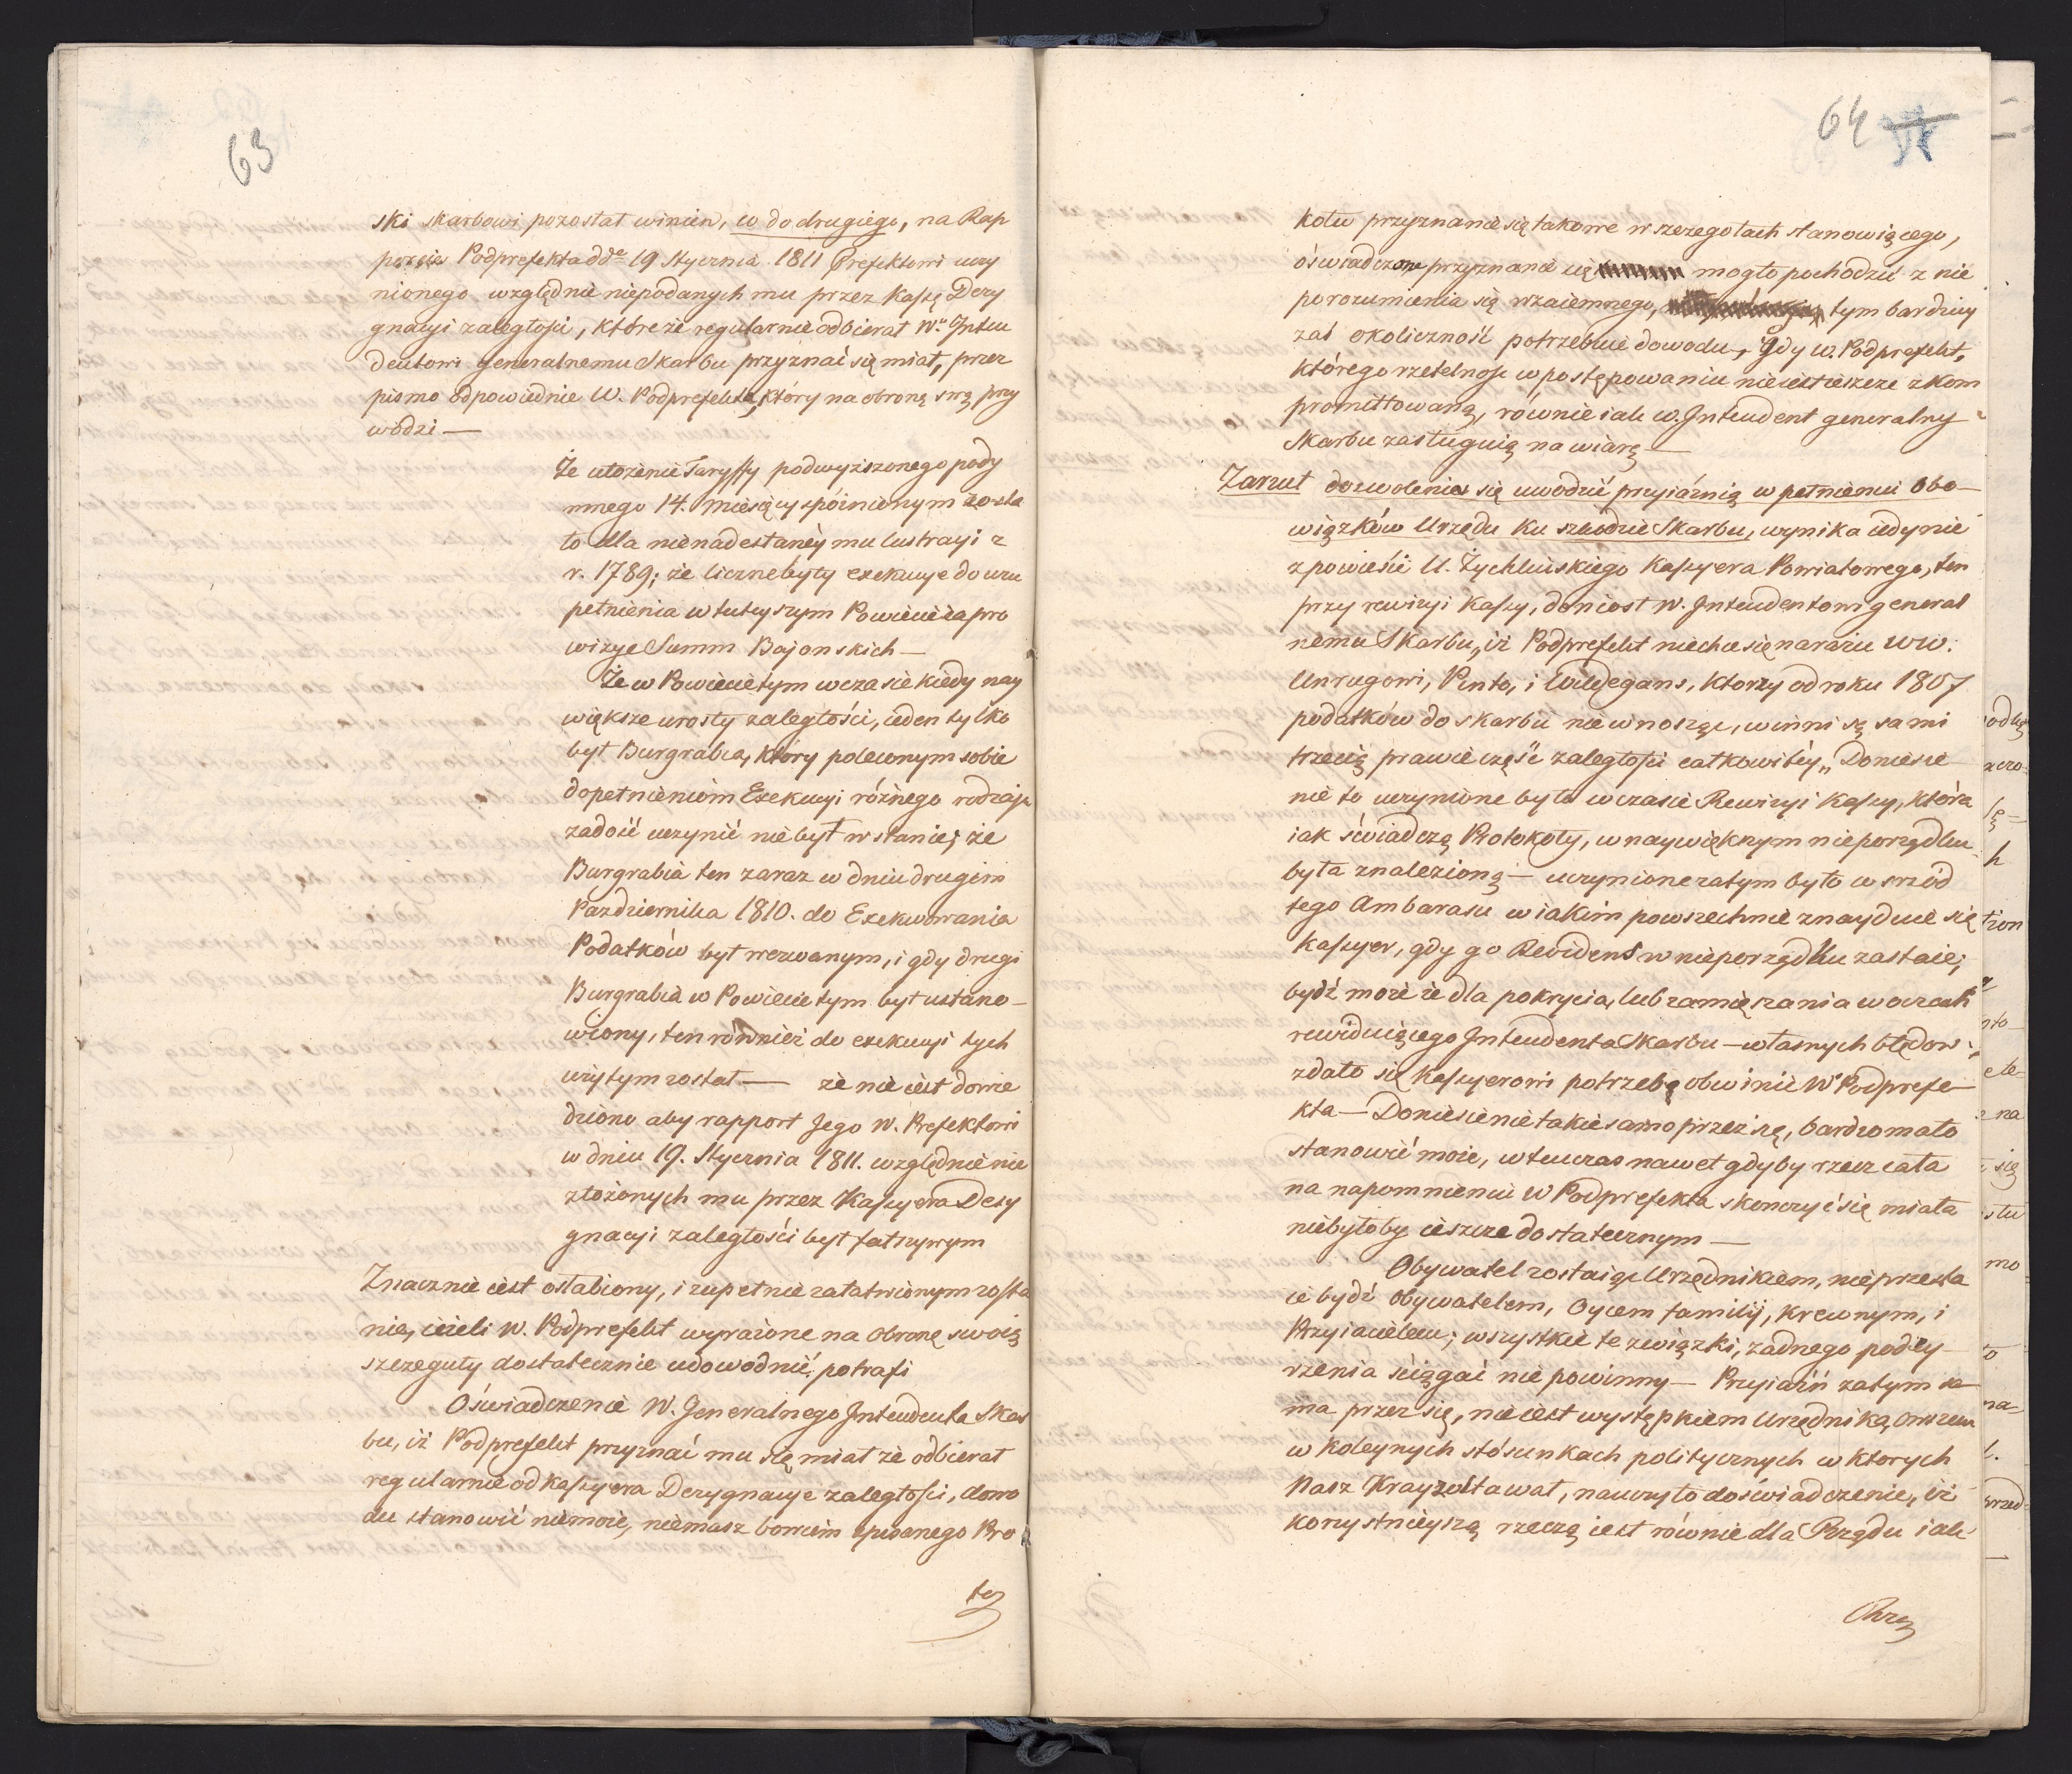 63
ski skarbowi pozostał winien, co do drugiego, na Rap
porcie Podprefekta dde 19 Stycznia 1811 Prefektowi uczy
nionego względnie niepodanych mu przez Kassę Dezy
gnacyi zaległości, które że regularnie odbierał W. Inten
dentowi Generalnemu Skarbu przyznać się miał, przez
pismo odpowiednie W. Podprefekta, który na obronę swą przy
wodzi —
Że ułożenie Taryffy podwyższonego pody
mnego 14. Miesięcy spóźnionym zosta
ło dla nienadesłanéy mu lustracyi z
r. 1789; że liczne były exekucye do uzu
pełnienia w tuteyszym Powiecie zapro
wizye Summ Bajonskich —
Że w Powiecie tym w czasie kiedy nay
większe urosły zaległości, ieden tylko
był Burgrabia, który poleconym sobie
dopełnieniom Exekucyi różnego rodzaju
zadość uczynić nie był w stanie; że
Burgrabia ten zaraz w dniu drugim
Pazdziernika 1810. do Exekwowania
Podatków był wezwanym, i gdy drugi
Burgrabia w Powiecie tym był ustano-
wiony, ten również do exekucyi tych
użytym został — że nie iest dowie
dziono aby rapport Jego W. Prefektowi
w dniu 19. Stycznia 1811. względnie nie
złożonych mu przez Kassyera Dezy
gnacyi zaległości był fałszywym
Znacznie iest osłabiony, i zupełnie załatwionym zosta
nie, ieżeli W. Podprefekt wyrażone na obronę swoią
szczeguły dostatecznie udowodnić potrafi
Oświadczenie W. Generalnego Intendenta Skar
bu, iż Podprefekt przyznać mu się miał że odbierał
regularnie od Kassyera Dezygnacye zaległości, dowo
du stanowić niemoże, niemasz bowiem spisanego Pro
to
64
kołu przyznanie się takowe w szczegółach stanowiącego,
oświadczone przyznanie się mogło pochodzić z nie
porozumienia się wzaiemnego, tym bardziey
zaś okoliczność potrzebuie dowodu, gdy W. Podprefekt,
którego rzetelność w postępowaniu nie iest ieszcze zkom
promittowaną, równie iak W. Intendent generalny
Skarbu zasługuią na wiarę —
Zarzut dozwolenia się uwodzić przyiaźnią w pełnieniu Obo-
wiązków Urzędu ku szkodzie Skarbu, wynika iedynie
z powieści U. Żychlińskiego Kassyera Powiatowego, ten
przy rewizyi Kassy, doniosł W. Intendentowi general
nemu Skarbu, iż Podprefekt niechce się narazić WW.
Unrugowi, Pinto, i Wildegans, ktorzy od roku 1807
podatków do skarbu nie wnosząc, winni są sami
trzecią prawie część zaległości całkowitéy„ Doniesie
nie to uczynione było w czasie Rewizyi Kassy, która
iak świadczą Protokoły, w naywiększym nieporządku
była znalezioną — uczynione zatym było w srzód
tego Ambarasu w iakim powszechnie znayduie się
Kassyer, gdy go Rewidens w nieporządku zastaie;
bydź może że dla pokrycia, lub zamięszania w oczach
rewiduiącego Intendenta Skarbu — własnych błędow
zdało się kassyerowi potrzebą obwinić W. Podprefe-
kta — Doniesienie takie samo przez się, bardzo mało
stanowić może, w tenczas nawet gdyby rzecz cała
na napomnieniu W Podprefekta skonczyć się miała
niebyłoby ieszcze dostatecznym —
Obywatel zostaiąc Urzędnikiem, nieprzesta
ie bydź Obywatelem, Oycem familij, Krewnym, i
Przyiacielem; wszystkie te związki, żadnego podey-
rzenia ściągać nie powinny — Przyiaźń zatym sa
ma przez się, nie iest występkiem Urzędnika, Owszem
w koleynych stósunkach politycznych w ktorych
Nasz Kray zostawał, nauczyło doświadczenie, iż
korzystnieyszą rzeczą iest równie dla Rządu iak